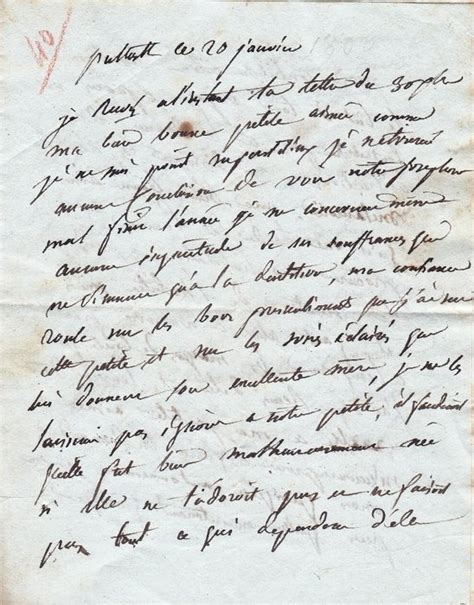 40
pultusk ce 20 janvier
je reçois a l'instant ta lettre du 30
ma bien bonne petite aimée comme
je ne suis point superstitieux je
aucune de voir notre josephine
mal finir l'année je ne concevrai même
aucune inquietude de ses souffrances que
ne diminue qu'a la dentition, ma confiance
roule sur les bons que j'ai sur
cette petite et sur les soins éclairés que
lui donnera son excellente mere, je ne
pas a notre petite, il faudroit
qu'elle fut bien malheureusement née
si elle ne t'adoroit pas et ne faisoit
pas tout ce qui dependra d'elle